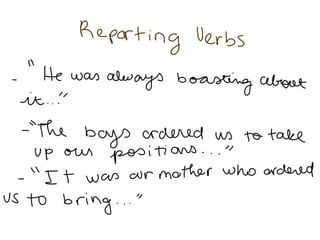 Reporting Verbs
- "He was always boasting about
it..."
- "The boys ordered us to take
up our positions..."
- "It was our mother who ordered
us to bring..."